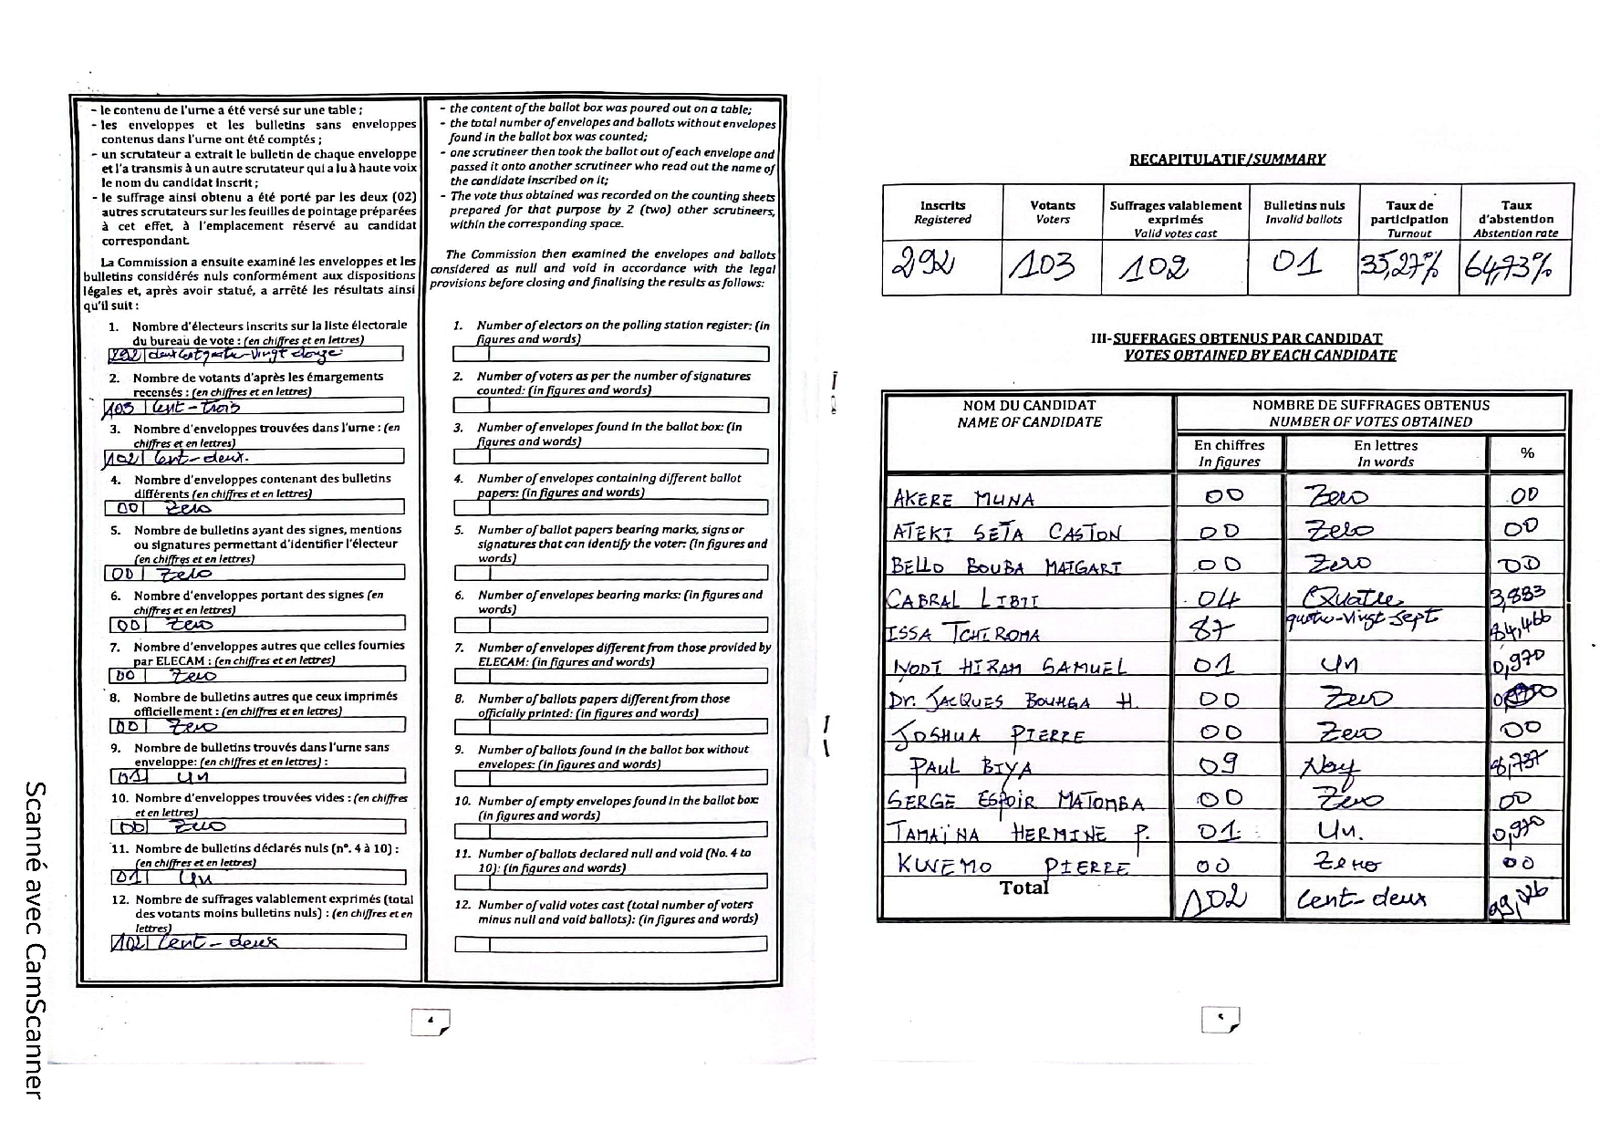 - le contenu de l'urne a été versé sur une table ;
- les enveloppes et les bulletins sans enveloppes
contenus dans l'urne ont été comptés ;
- un scrutateur a extrait le bulletin de chaque enveloppe
et l'a transmis à un autre scrutateur qui a lu à haute voix
le nom du candidat inscrit ;
- le suffrage ainsi obtenu a été porté par les deux (02)
autres scrutateurs sur les feuilles de pointage préparées
à cet effet, à l'emplacement réservé au candidat
correspondant.
La Commission a ensuite examiné les enveloppes et les
bulletins considérés nuls conformément aux dispositions
légales et, après avoir statué, a arrêté les résultats ainsi
qu'il suit :
1. Nombre d'électeurs inscrits sur la liste électorale
du bureau de vote : (en chiffres et en lettres)
292 deux cent quatre-vingt douze
2. Nombre de votants d'après les émargements
recensés : (en chiffres et en lettres)
103 Cent-trois
3. Nombre d'enveloppes trouvées dans l'urne : (en
chiffres et en lettres)
102 Cent-deux.
4. Nombre d'enveloppes contenant des bulletins
différents (en chiffres et en lettres)
00 Zero
5. Nombre de bulletins ayant des signes, mentions
ou signatures permettant d'identifier l'électeur
(en chiffres et en lettres)
00 Zero
6. Nombre d'enveloppes portant des signes (en
chiffres et en lettres)
00 Zero
7. Nombre d'enveloppes autres que celles fournies
par ELECAM : (en chiffres et en lettres)
00 Zero
8. Nombre de bulletins autres que ceux imprimés
officiellement : (en chiffres et en lettres)
00 Zero
9. Nombre de bulletins trouvés dans l'urne sans
enveloppe: (en chiffres et en lettres) :
01 Un
10. Nombre d'enveloppes trouvées vides : (en chiffres
et en lettres)
00 Zero
11. Nombre de bulletins déclarés nuls (n°. 4 à 10) :
(en chiffres et en lettres)
01 Un
12. Nombre de suffrages valablement exprimés (total
des votants moins bulletins nuls) : (en chiffres et en
lettres)
102 Cent-deux
- the content of the ballot box was poured out on a table;
- the total number of envelopes and ballots without envelopes
found in the ballot box was counted;
- one scrutineer then took the ballot out of each envelope and
passed it onto another scrutineer who read out the name of
the candidate inscribed on it;
- The vote thus obtained was recorded on the counting sheets
prepared for that purpose by 2 (two) other scrutineers,
within the corresponding space.
The Commission then examined the envelopes and ballots
considered as null and void in accordance with the legal
provisions before closing and finalising the results as follows:
1. Number of electors on the polling station register: (in
figures and words)
2. Number of voters as per the number of signatures
counted: (in figures and words)
3. Number of envelopes found in the ballot box: (in
figures and words)
4. Number of envelopes containing different ballot
papers: (in figures and words)
5. Number of ballot papers bearing marks, signs or
signatures that can identify the voter: (in figures and
words)
6. Number of envelopes bearing marks: (in figures and
words)
7. Number of envelopes different from those provided by
ELECAM: (in figures and words)
8. Number of ballots papers different from those
officially printed: (in figures and words)
9. Number of ballots found in the ballot box without
envelopes: (in figures and words)
10. Number of empty envelopes found in the ballot box:
(in figures and words)
11. Number of ballots declared null and void (No. 4 to
10): (in figures and words)
12. Number of valid votes cast (total number of voters
minus null and void ballots): (in figures and words)
4
RECAPITULATIF/SUMMARY
Inscrits Registered
Votants Voters
Suffrages valablement exprimés Valid votes cast
Bulletins nuls Invalid ballots
Taux de participation Turnout
Taux d'abstention Abstention rate
292 103 102 01 35,27% 64,73%
III-SUFFRAGES OBTENUS PAR CANDIDAT
VOTES OBTAINED BY EACH CANDIDATE
NOM DU CANDIDAT NOMBRE DE SUFFRAGES OBTENUS
NAME OF CANDIDATE NUMBER OF VOTES OBTAINED
En chiffres En lettres %
In figures In words
AKERE MUNA 00 Zero 00
ATEKI SETA CASTON 00 Zero 00
BELLO BOUBA MAIGARI 00 Zero 00
CABRAL LIBII 04 Quatre 3,883
ISSA TCHIROMA 87 quatre-vingt sept 84,466
IYODI HIRAM SAMUEL 01 Un 0,970
Dr. JACQUES BOUHGA H. 00 Zero
JOSHUA PIERRE 00 Zero 00
PAUL BIYA 09 Neuf 8,737
SERGE ESPOIR MATOMBA 00 Zero 00
TAMAÏNA HERMINE P. 01 Un. 0,970
KWEMO PIERRE 00 Zero 00
Total 102 Cent-deux
5
Scanné avec CamScanner